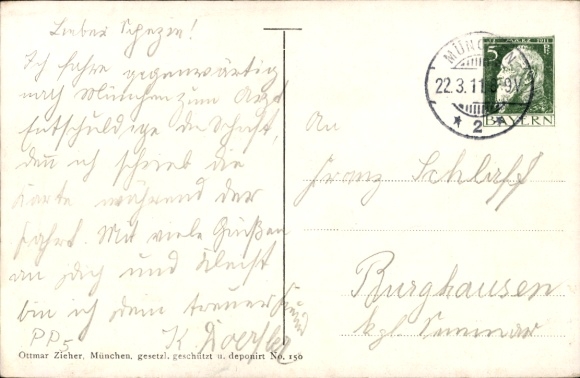 Lieber Spezie!
Ich fahre gegenwärtig
nach München zum Arzt
Entschuldige die Schrift,
denn ich schrieb die
Karte während der
Fahrt. Mit viele Grüßen
an Dich und
bin ich dein treuer Freund
PP5 K.
Ottmar Zieher, München, gesetzl. geschützt u. deponirt No. 150
MÜNCHEN
22.3.11.
* 2 *
5
12. MÄRZ 1911
BAYERN
An
Franz Schlaff
Burghausen
kgl. Seminar